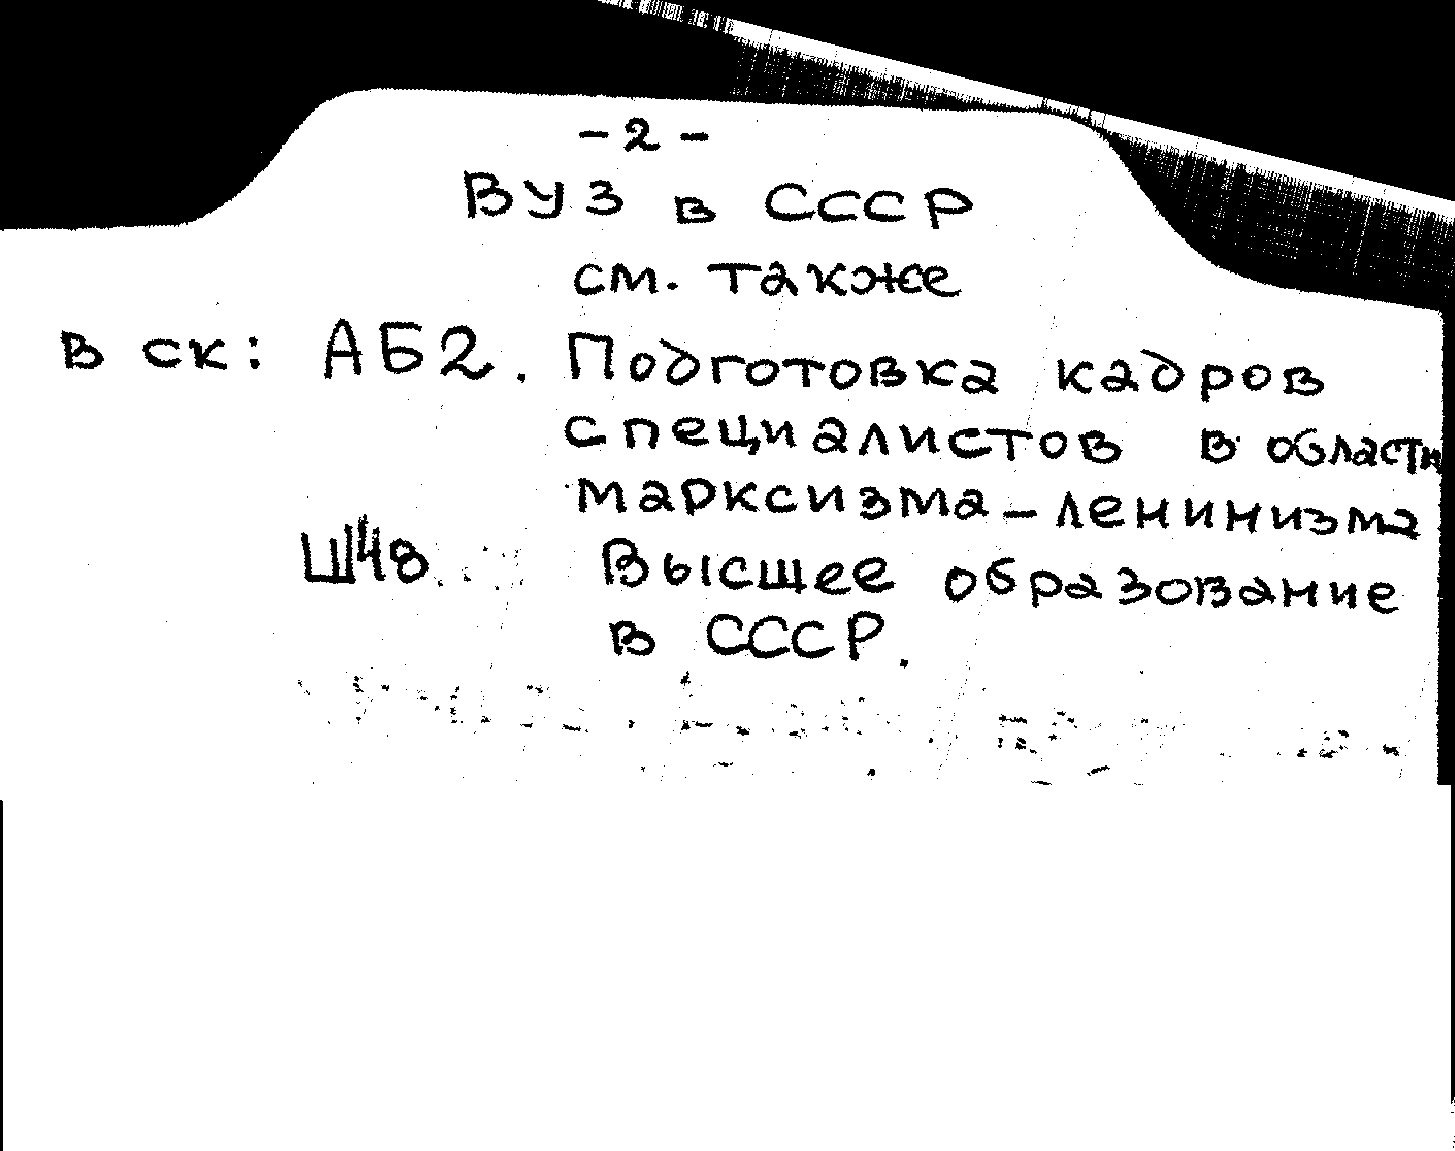 - 2 -
ВУЗ в СССР
см. также
в ск: АБ2. Подготовка кадров
специалистов в области
марксизма-ленинизма
Ш48 Высшее образование
в СССР.